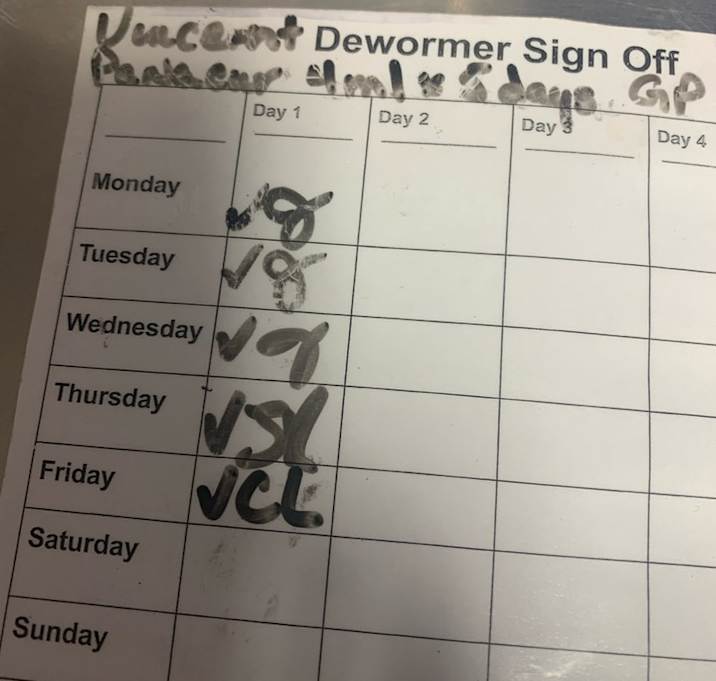 Vincent Dewormer Sign Off
Panacur 4ml x 5 days GP
Day 1 Day 2 Day 3 Day 4
Monday ✓
Tuesday ✓
Wednesday ✓
Thursday ✓ SL
Friday ✓ CL
Saturday
Sunday